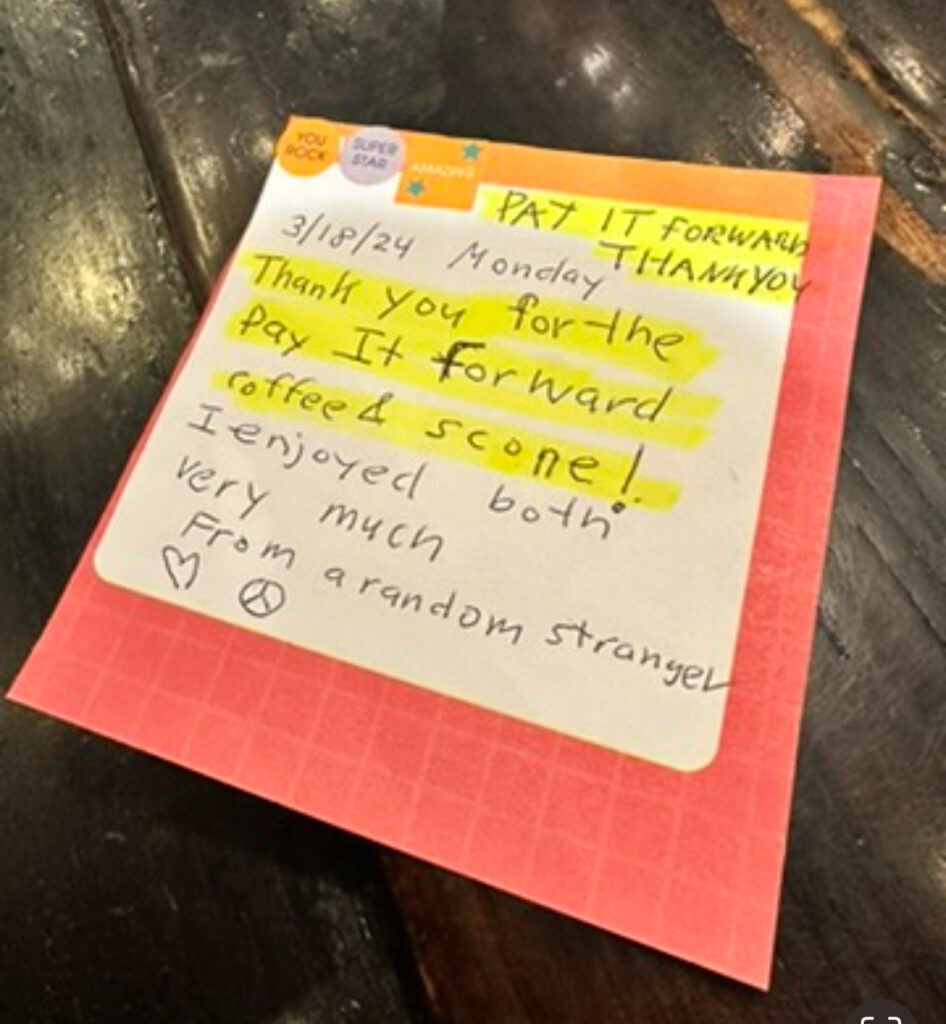 YOU
ROCK
SUPER
STAR
AMAZING
PAY IT FORWARD
THANK YOU
3/18/24 Monday
Thank you for the
Pay It Forward
coffee & scone!
I enjoyed both
very much
From a random stranger